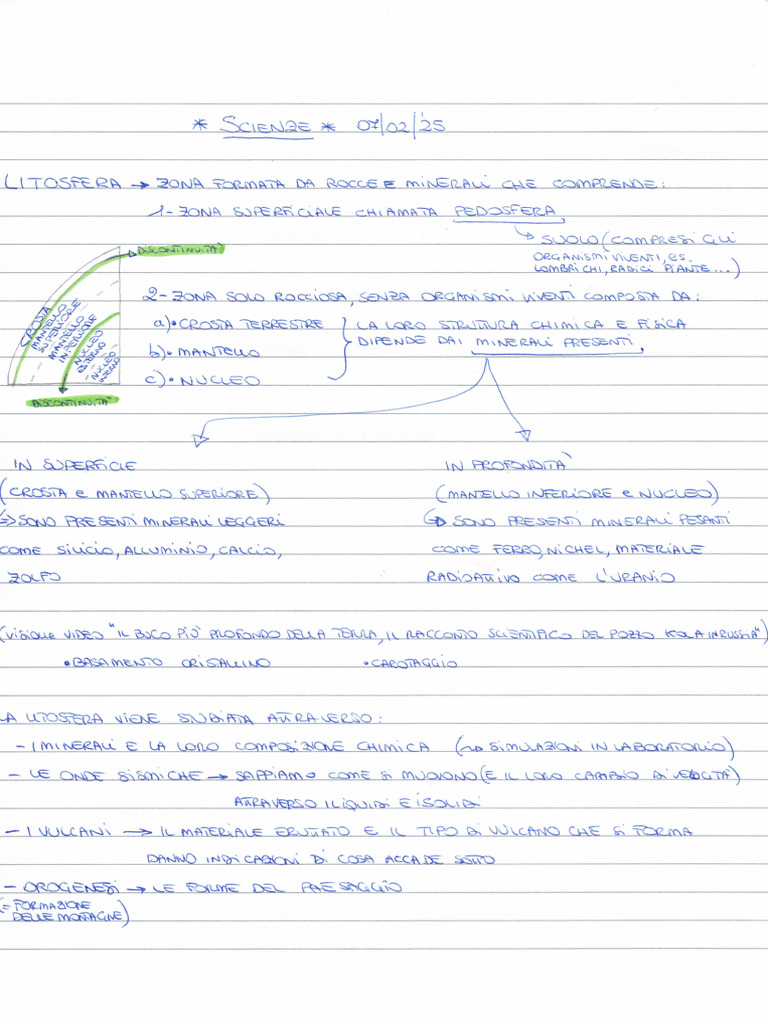 * SCIENZE * 07/02/'25
LITOSFERA → ZONA FORMATA DA ROCCE E MINERALI CHE COMPRENDE:
1- ZONA SUPERFICIALE CHIAMATA PEDOSFERA
↳ SUOLO (COMPRESI GLI
ORGANISMI VIVENTI, ES.
LOMBRICHI, RADICI PIANTE...)
DISCONTINUITÀ
CROSTA
MANTELLO
SUPERIORE
MANTELLO
INFERIORE
NUCLEO
ESTERNO
NUCLEO
INTERNO
DISCONTINUITÀ
2- ZONA SOLO ROCCIOSA, SENZA ORGANISMI VIVENTI COMPOSTA DA:
a)• CROSTA TERRESTRE
b)• MANTELLO
c)• NUCLEO
LA LORO STRUTURA CHIMICA E FISICA
DIPENDE DAI MINERALI PRESENTI
IN SUPERFICIE
(CROSTA e MANTELLO SUPERIORE)
↳ SONO PRESENTI MINERALI LEGGERI
COME SILICIO, ALLUMINIO, CALCIO,
ZOLFO
IN PROFONDITÀ
(MANTELLO INFERIORE e NUCLEO)
↳ SONO PRESENTI MINERALI PESANTI
COME FERRO, NICHEL, MATERIALE
RADIOATTIVO COME L'URANIO
(VISIONE VIDEO "IL BUCO PIÙ PROFONDO DELLA TERRA, IL RACCONTO SCIENTIFICO DEL POZZO KOLA IN RUSSIA")
• BASAMENTO CRISTALLINO • CAROTAGGIO
LA LITOSFERA VIENE STUDIATA ATTRAVERSO:
- I MINERALI E LA LORO COMPOSIZIONE CHIMICA (→ SIMULAZIONI IN LABORATORIO)
- LE ONDE SISMICHE → SAPPIAMO COME SI MUOVONO (E IL LORO CAMBIO DI VELOCITÀ)
ATTRAVERSO I LIQUIDI E I SOLIDI
- I VULCANI → IL MATERIALE ERUTTATO E IL TIPO DI VULCANO CHE SI FORMA
DANNO INDICAZIONI DI COSA ACCADE SOTTO
- OROGENESI → LE FORME DEL PAESAGGIO
(= FORMAZIONE
DELLE MONTAGNE)